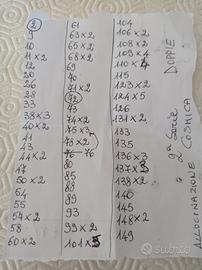 2
9
10
11 x 2
12
20
26
28
33
38 x 3
40 x 2
41
43
44 x 2
47
50 x 2
54
55
54 x 2
58
60 x 2
61
63 x 2
65 x 2
68 x 2
69
70
71 x 2
72
43
74 x 2
75 x 3
73 x 2
76 76
80
85
88
89
93
93 x 2
101 x 5
104
106 x 2
108 x 2
109 x 4
110 x 4
115
123 x 2
124 x 5
126
131 x 2
133
135
136 x 3
137 x 5
138 x 2
140
145
148 x 2
149
DOPPIE
2ª Serie
COSMICA
ALLUCINAZIONE
subito